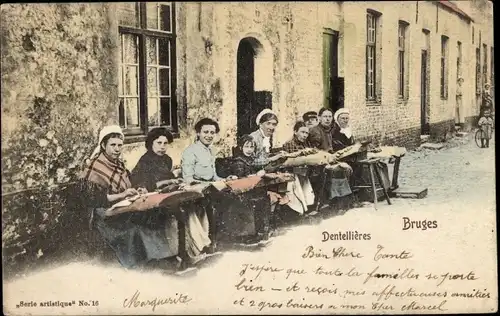 Bruges
Dentellières
Bien Chère Tante
J'espère que toute la famille se porte
bien - et reçois mes affectueuses amitiés
et 2 gros baisers a mon Cher Marcel
Marguerite
„Serie artistique" No. 16